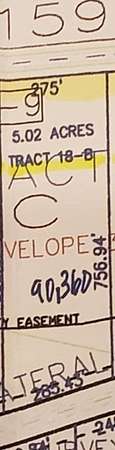 159
275'
-9
5.02 ACRES
TRACT 18-B
ACT
C
VELOPE
90,360
756.94'
Y EASEMENT
ATERAL
285.45'